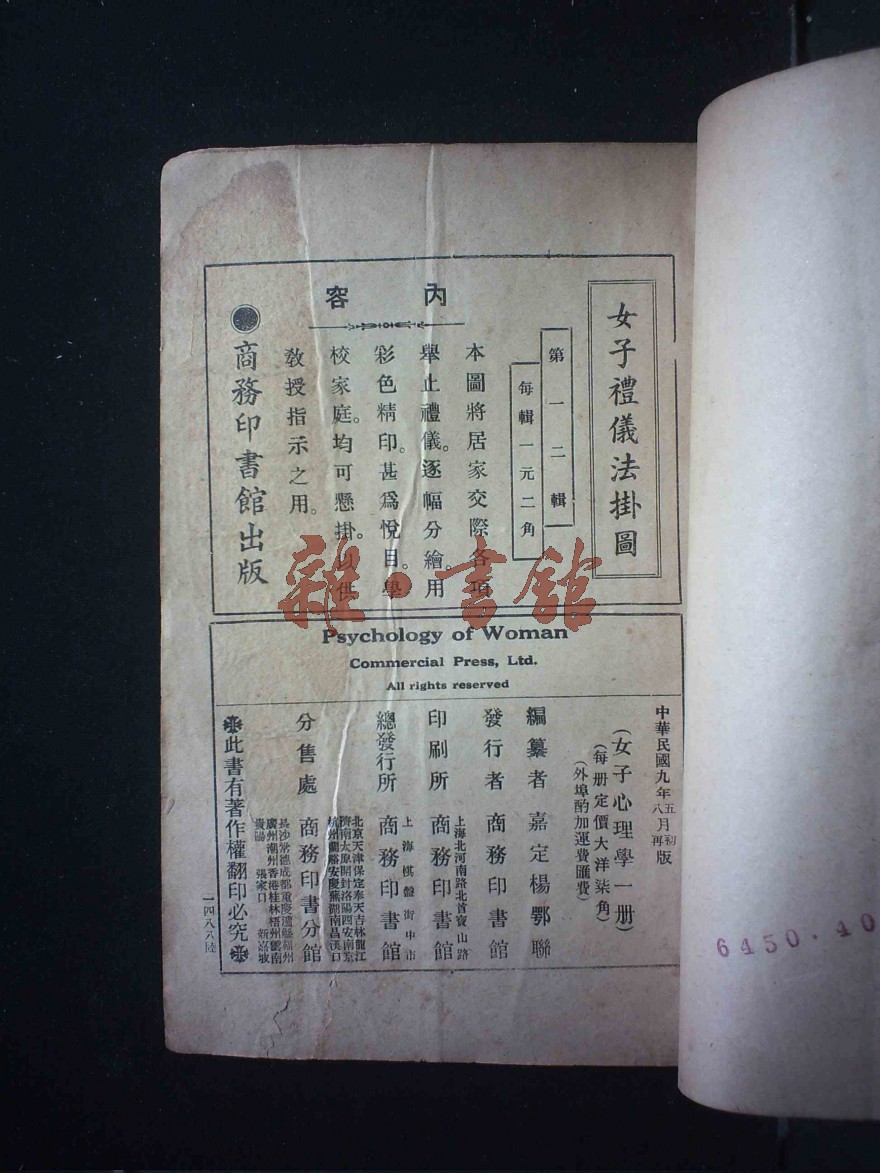 女子禮儀法掛圖
第一二輯
每輯一元二角
內容
本圖將居家交際各項
舉止禮儀。逐幅分繪。用
彩色精印。甚爲悅目。學
校家庭。均可懸掛。以供
教授指示之用。
商務印書館出版
雜·書館
Psychology of Woman
Commercial Press, Ltd.
All rights reserved
中華民國九年五月初版
八再
(女子心理學一册)
(每册定價大洋柒角)
(外埠酌加運費匯費)
編纂者 嘉定楊鄂聯
發行者 商務印書館
上海北河南路北首寶山路
印刷所 商務印書館
上海棋盤街中市
總發行所 商務印書館
北京天津保定奉天吉林龍江
濟南太原開封洛陽西安南京
杭州蘭谿安慶蕪湖南昌漢口
分售處 商務印書分館
長沙常德成都重慶瀘縣福州
廣州潮州香港桂林梧州雲南
貴陽 張家口 新嘉坡
此書有著作權翻印必究
一四八八陸
6450·40